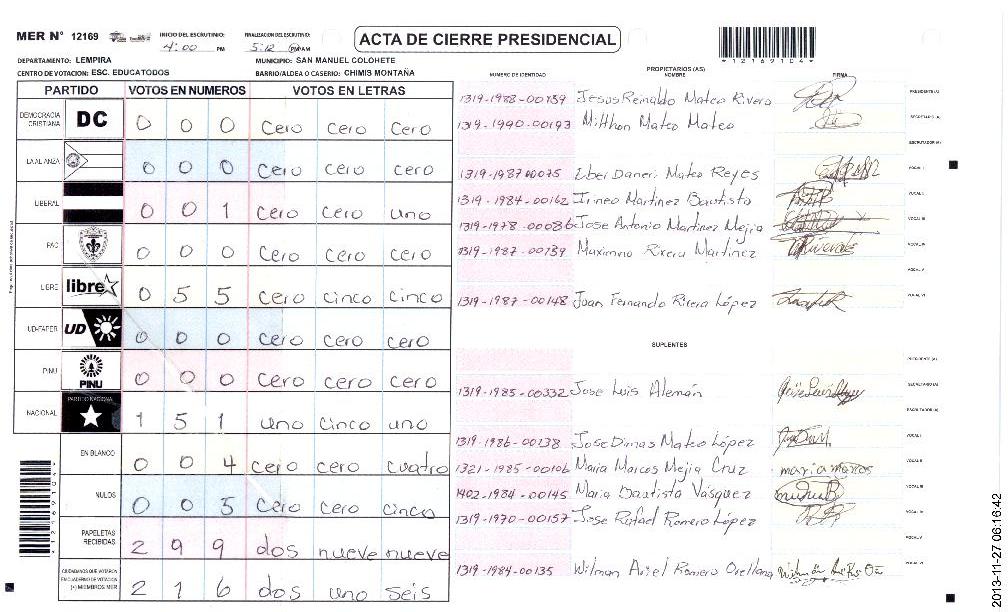 MER Nº 12169
INICIO DEL ESCRUTINIO: 4:00 PM
FINALIZACION DEL ESCRUTINIO: 5:12 PM/AM
ACTA DE CIERRE PRESIDENCIAL
*12169104*
DEPARTAMENTO: LEMPIRA
MUNICIPIO: SAN MANUEL COLOHETE
CENTRO DE VOTACION: ESC. EDUCATODOS
BARRIO/ALDEA O CASERIO: CHIMIS MONTAÑA
PARTIDO VOTOS EN NUMEROS VOTOS EN LETRAS
DEMOCRACIA CRISTIANA DC 0 0 0 cero cero cero
LA ALIANZA 0 0 0 cero cero cero
LIBERAL 0 0 1 cero cero uno
PAC 0 0 0 cero cero cero
LIBRE libre 0 5 5 cero cinco cinco
UD-FAPER UD 0 0 0 cero cero cero
PINU PINU 0 0 0 cero cero cero
NACIONAL PARTIDO NACIONAL 1 5 1 uno cinco uno
EN BLANCO 0 0 4 cero cero cuatro
NULOS 0 0 5 cero cero cinco
PAPELETAS RECIBIDAS 2 9 9 dos nueve nueve
CIUDADANOS QUE VOTARON EN CUADERNO DE VOTACION (+) MIEMBROS MER 2 1 6 dos uno seis
PROPIETARIOS (AS)
NUMERO DE IDENTIDAD NOMBRE FIRMA
1319-1988-00139 Jesus Reinaldo Mateo Rivera PRESIDENTE (A)
1319-1990-00193 Milthon Mateo Mateo SECRETARIO (A)
ESCRUTADOR (A)
1319-1987-00075 Eber Daneri Mateo Reyes VOCAL I
1319-1984-00162 Irineo Martinez Bautista VOCAL II
1319-1978-00086 Jose Antonio Martinez Mejia VOCAL III
1319-1987-00739 Maximino Rivera Martinez VOCAL IV
VOCAL V
1319-1987-00148 Juan Fernando Rivera López VOCAL VI
SUPLENTES
PRESIDENTE (A)
1319-1985-00332 Jose Luis Alemán SECRETARIO (A)
ESCRUTADOR (A)
1319-1986-00138 Jose Dimas Mateo López VOCAL I
1321-1985-00106 Maria Marcos Mejia Cruz maria marcos VOCAL II
1402-1984-00145 Maria Bautista Vásquez VOCAL III
1319-1970-00157 Jose Rafael Romero López VOCAL IV
VOCAL V
1319-1984-00135 Wilman Ariel Romero Orellana VOCAL VI
2013-11-27 06:16:42